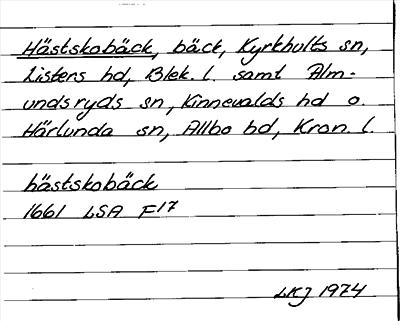 Hästskobäck, bäck, Kyrkhults sn,
Listers hd, Blek. l. samt Alm-
undsryds sn, Kinnevalds hd o.
Härlunda sn, Allbo hd, Kron. l.
hästskobäck
1661 LSA F17
LKJ 1974